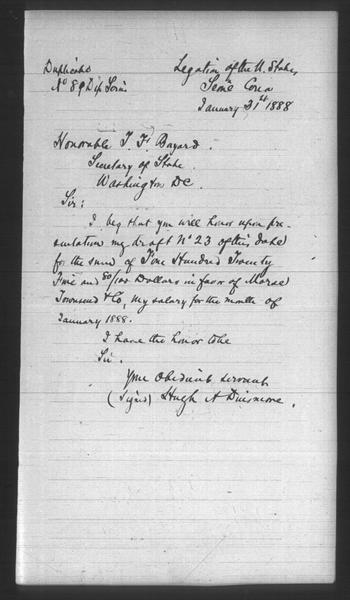 Duplicate
No 89 Dip Series
Legation of the U. States
Seoul Corea
January 31st 1888
Honorable T. F. Bayard.
Secretary of State
Washington DC.
Sir:
I beg that you will honor upon pre-
sentation my draft No 23 of this date
for the sum of Four Hundred Twenty
Five and 80/100 Dollars in favor of Morse
Townsend & Co, my salary for the month of
January 1888.
I have the honor to be
Sir.
Your Obedient servant
(Signed) Hugh A Dinsmore.